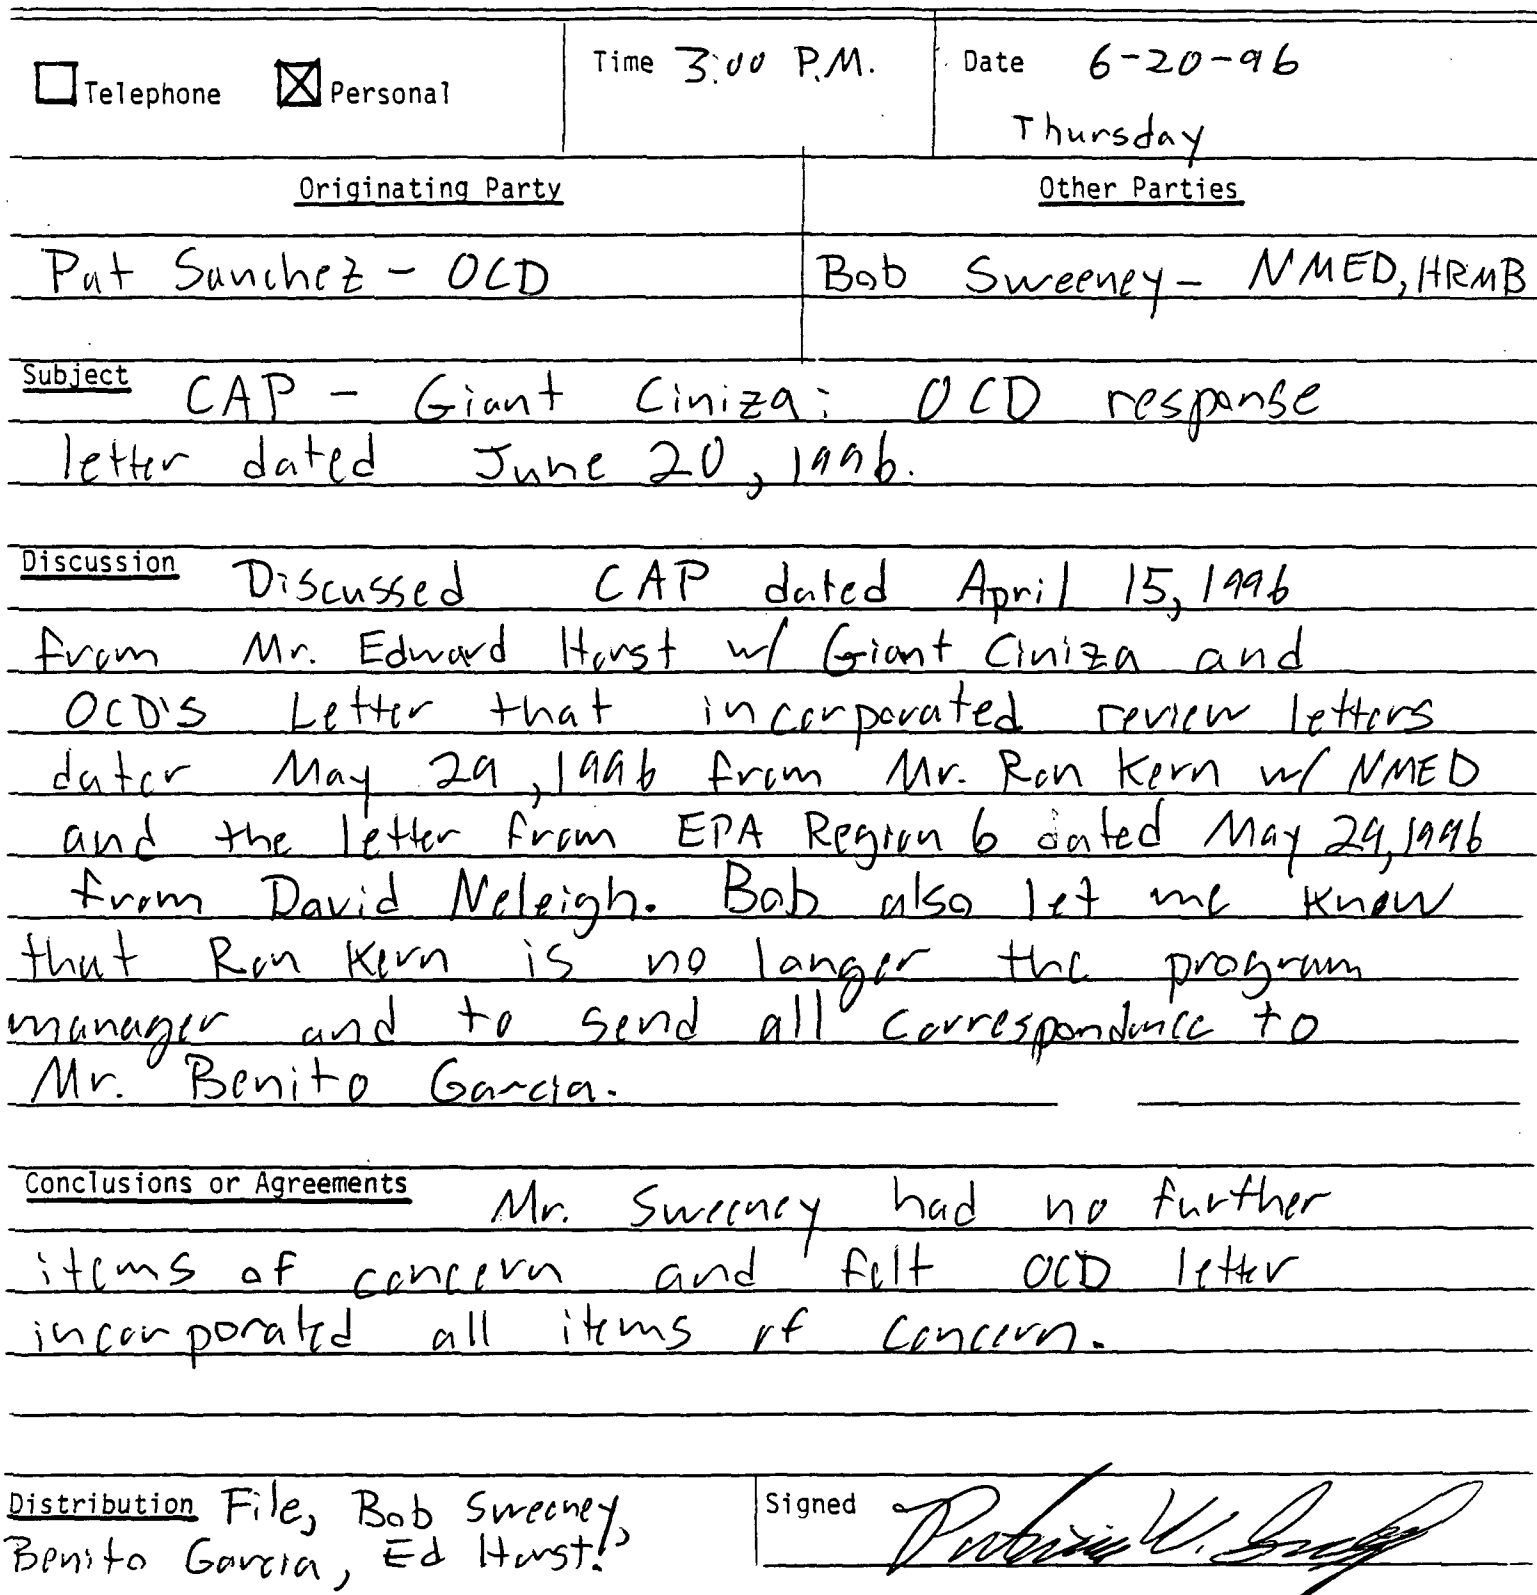 Telephone Personal Time 3:00 P.M. Date 6-20-96
Thursday
Originating Party Other Parties
Pat Sanchez - OCD Bob Sweeney - NMED, HRMB
Subject CAP - Giant Ciniza: OCD response
letter dated June 20, 1996.
Discussion Discussed CAP dated April 15, 1996
from Mr. Edward Horst w/ Giant Ciniza and
OCD's Letter that incorporated review letters
dater May 29, 1996 from Mr. Ron Kern w/ NMED
and the letter from EPA Region 6 dated May 29, 1996
from David Neleigh. Bob also let me know
that Ron Kern is no longer the program
manager and to send all correspondence to
Mr. Benito Garcia.
Conclusions or Agreements Mr. Sweeney had no further
items of concern and felt OCD letter
incorporated all items of concern.
Distribution File, Bob Sweeney,
Benito Garcia, Ed Horst.
Signed